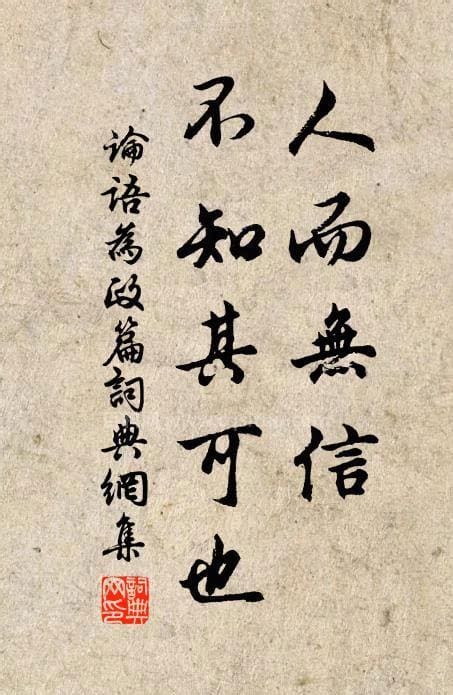 人而無信
不知其可也
論語為政篇詞典網集
詞典網印